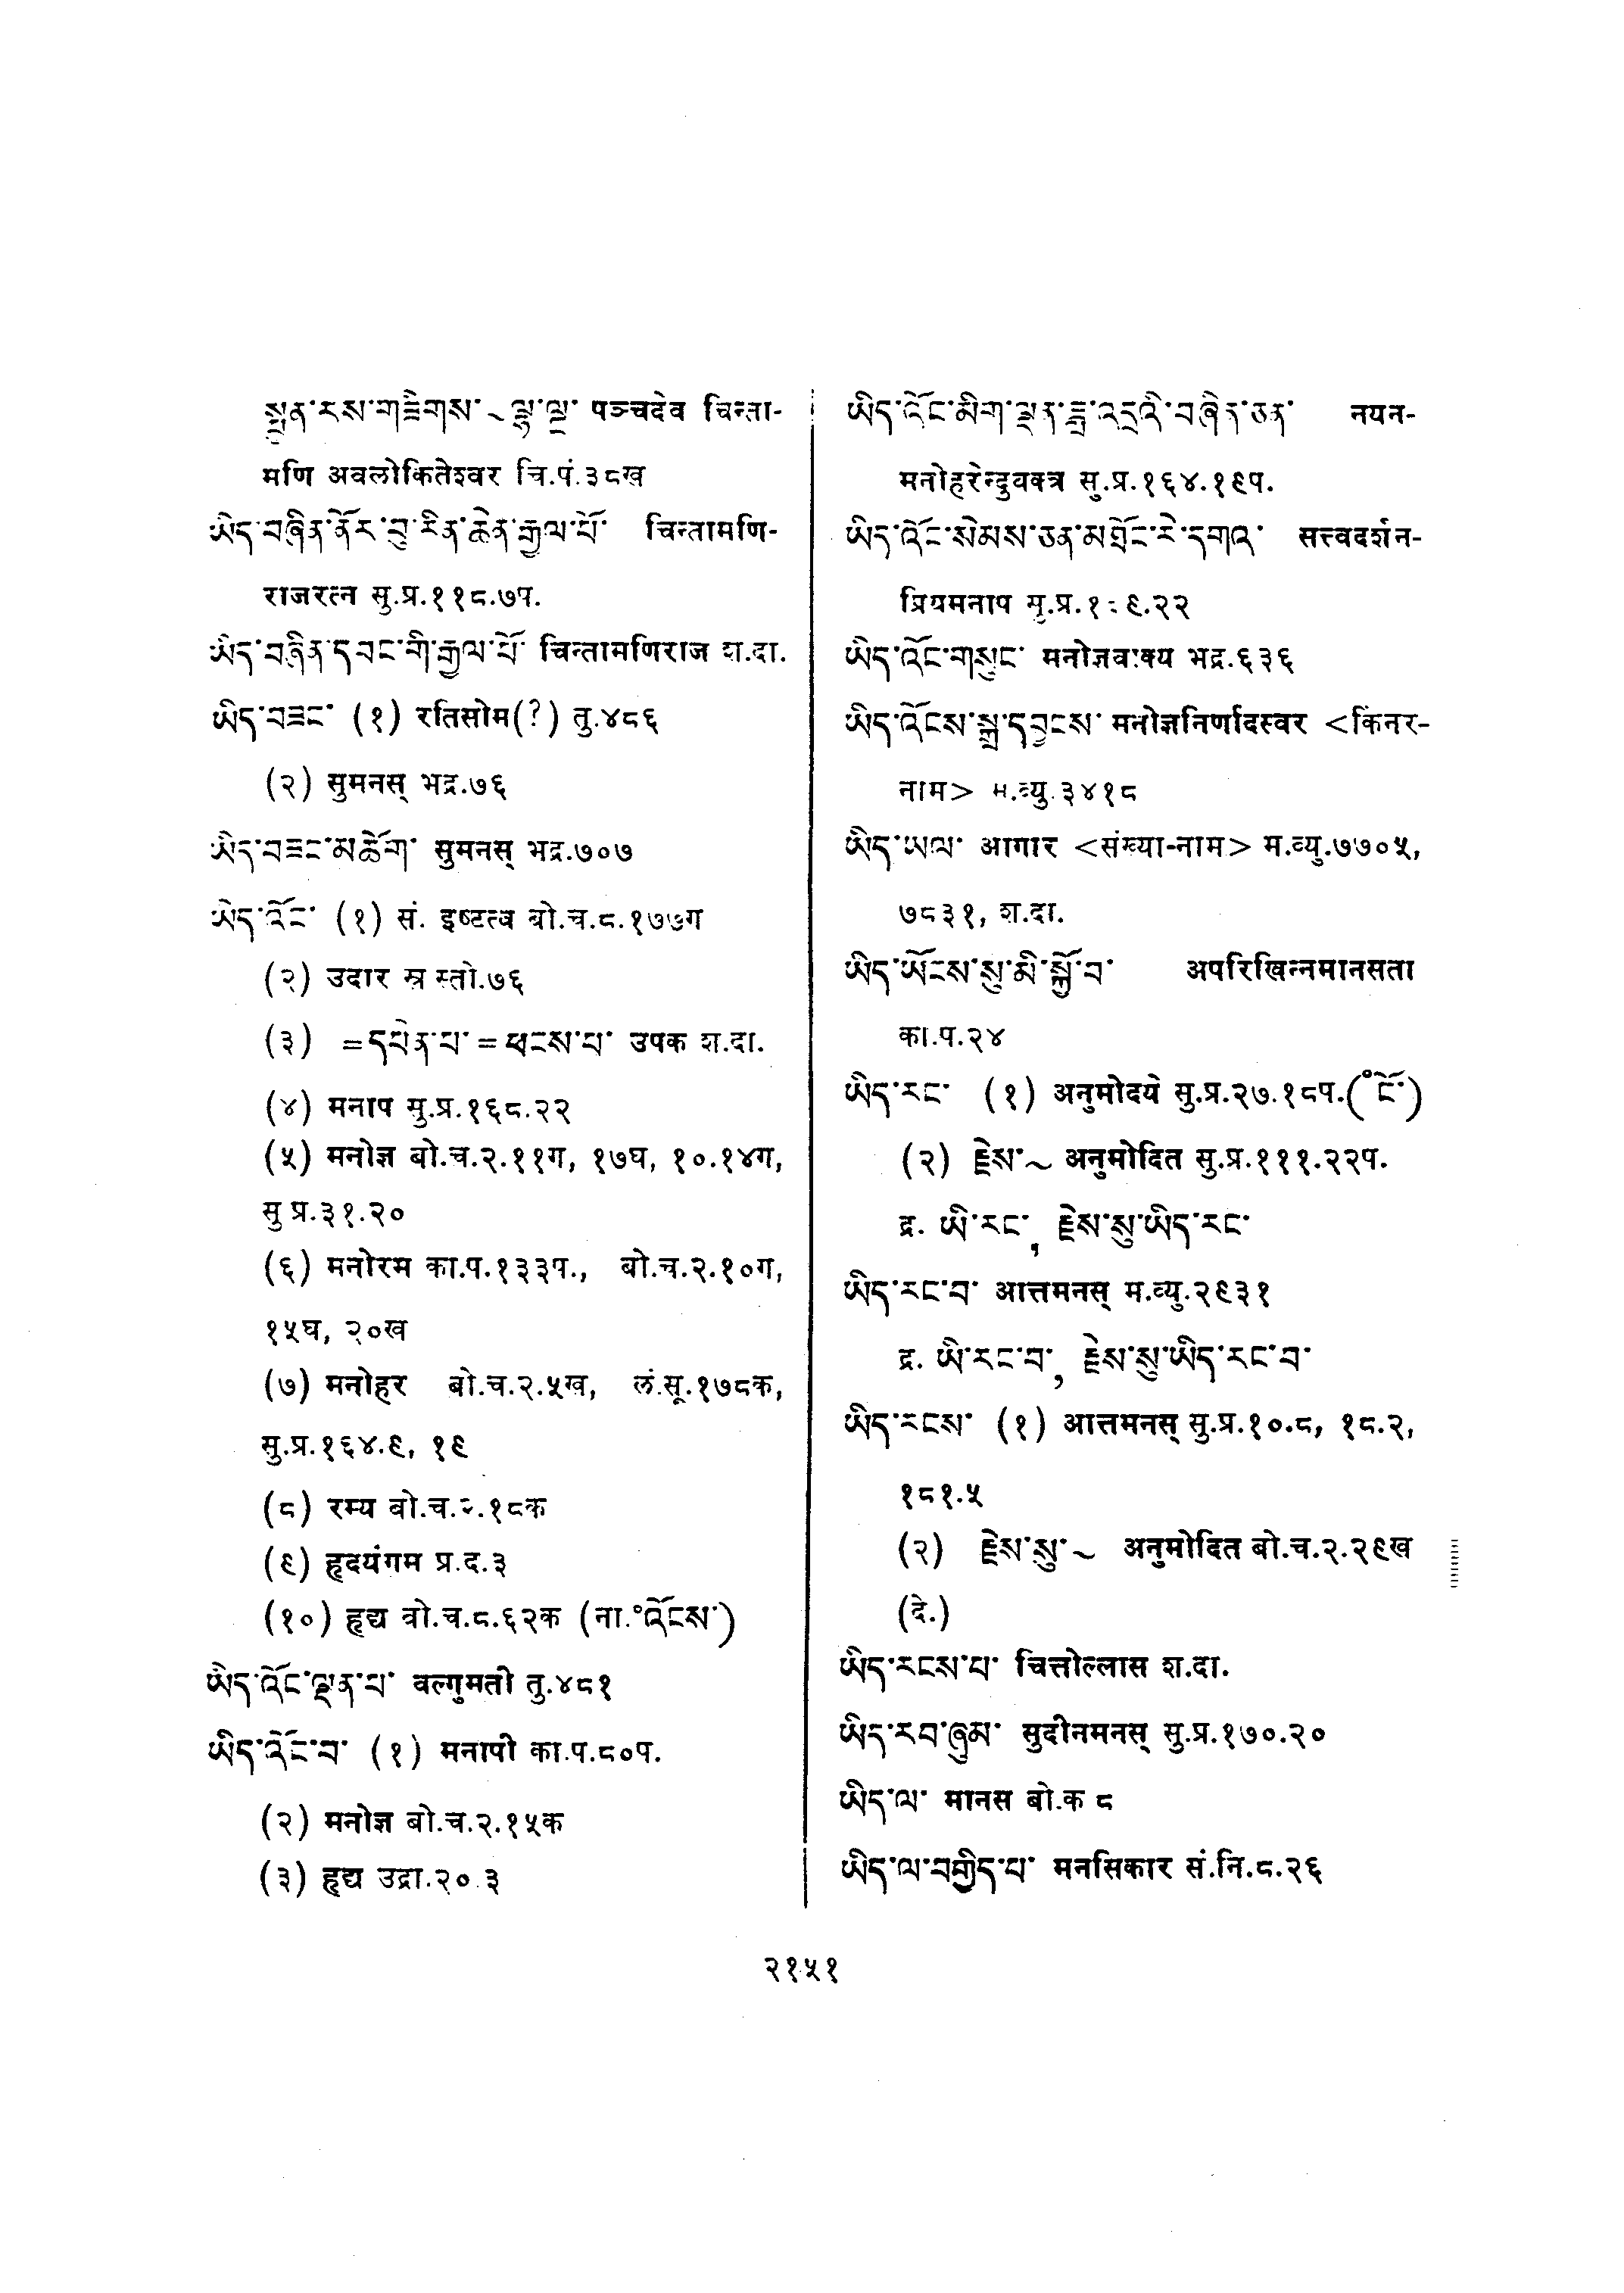 སྤྱན་རས་གཟིགས་ ~ ལྷ་ལྔ་ पञ्चदेव चिन्ता-
मणि अवलोकितेश्वर चि.पं.३८ख
ཡིད་བཞིན་ནོར་བུ་རིན་ཆེན་རྒྱལ་པོ་ चिन्तामणि-
राजरत्न सु.प्र.११८.७प.
ཡིད་བཞིན་དབང་གི་རྒྱལ་པོ་ चिन्तामणिराज श.दा.
ཡིད་བཟང་ (१) रतिसोम(?) तु.४८६
(२) सुमनस् भद्र.७६
ཡིད་བཟང་མཆོག་ सुमनस् भद्र.७०७
ཡིད་འོང་ (१) सं. इष्टत्व बो.च.८.१७७ग
(२) उदार स्र स्तो.७६
(३) =དཔེན་པ་ = ཕངས་པ་ उपक श.दा.
(४) मनाप सु.प्र.१६८.२२
(५) मनोज्ञ बो.च.२.११ग, १७घ, १०.१४ग,
सु प्र.३१.२०
(६) मनोरम का.प.१३३प., बो.च.२.१०ग,
१५घ, २०ख
(७) मनोहर बो.च.२.५ख, लं.सू.१७८क,
सु.प्र.१६४.९, १९
(८) रम्य बो.च.२.१८क
(९) हृदयंगम प्र.द.३
(१०) हृद्य बो.च.८.६२क (ना.°འོངས་)
ཡིད་འོང་ལྡན་པ་ वल्गुमती तु.४८१
ཡིད་འོང་བ་ (१) मनापी का.प.८०प.
(२) मनोज्ञ बो.च.२.१५क
(३) हृद्य उद्रा.२०.३
ཡིད་འོང་མིག་ལྡན་ཟླ་འདྲའི་བཞིན་ཅན་ नयन-
मनोहरेन्दुवक्त्र सु.प्र.१६४.१९प.
ཡིད་འོང་སེམས་ཅན་མཐོང་རེ་དགའ་ सत्त्वदर्शन-
प्रियमनाप सु.प्र.१ ९.२२
ཡིད་འོང་གསུང་ मनोज्ञवाक्य भद्र.६३६
ཡིད་འོངས་སྒྲ་དབྱངས་ मनोज्ञनिर्णादस्वर <किंनर-
नाम> म.व्यु.३४१८
ཡིད་ཡལ་ आगार <संख्या-नाम> म.व्यु.७७०५,
७८३१, श.दा.
ཡིད་ཡོངས་སུ་མི་སྐྱོ་བ་ अपरिखिन्नमानसता
का.प.२४
ཡིད་རང་ (१) अनुमोदये सु.प्र.२७.१८प.(°ངོ་)
(२) རྗེས་ ~ अनुमोदित सु.प्र.१११.२२प.
द्र. ཡི་རང་, རྗེས་སུ་ཡིད་རང་
ཡིད་རང་བ་ आत्तमनस् म.व्यु.२९३१
द्र. ཡི་རང་བ་, རྗེས་སུ་ཡིད་རང་བ་
ཡིད་རངས་ (१) आत्तमनस् सु.प्र.१०.८, १८.२,
१८१.५
(२) རྗེས་སུ་ ~ अनुमोदित बो.च.२.२९ख
(दे.)
ཡིད་རངས་པ་ चित्तोल्लास श.दा.
ཡིད་རབ་ཞུམ་ सुदीनमनस् सु.प्र.१७०.२०
ཡིད་ལ་ मानस बो.क ८
ཡིད་ལ་བགྱིད་པ་ मनसिकार सं.नि.८.२६
२१५१